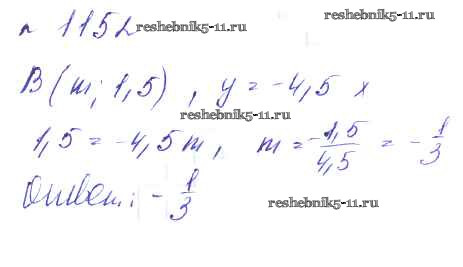 № 1152
reshebnik5-11.ru
B(m; 1,5), y = -4,5 x
reshebnik5-11.ru
1,5 = -4,5m, m = -1,5/4,5 = -1/3
Ответ: -1/3
reshebnik5-11.ru